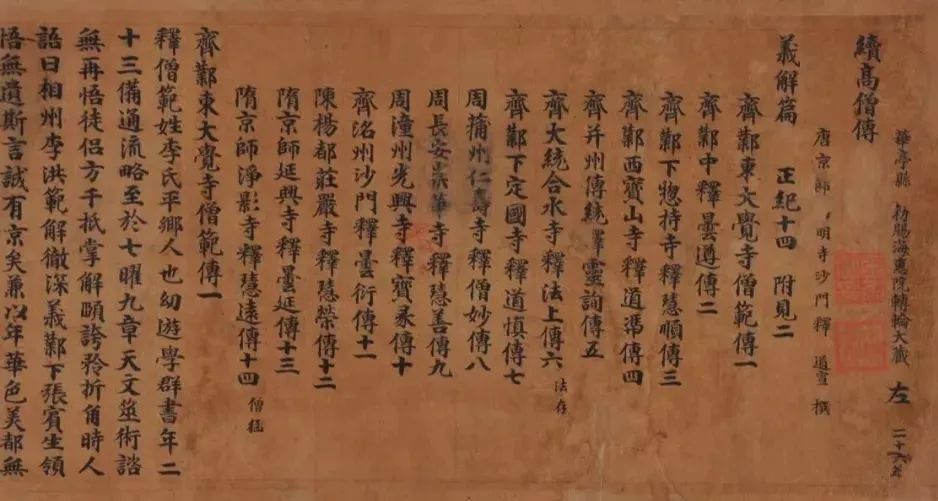 華亭縣 勑賜海惠院轉輪大藏 左
續高僧傳
唐京師 明寺沙門釋 道宣 撰
義解篇 正紀十四 附見二
齊鄴東大覺寺僧範傳一
齊鄴中釋曇遵傳二
齊鄴下惣持寺釋慧順傳三
齊鄴西寶山寺釋道憑傳四
齊并州僧統釋靈詢傳五
齊大統合水寺釋法上傳六 法存
齊鄴下定國寺釋道慎傳七
周蒲州仁壽寺釋僧妙傳八
周長安崇華寺釋慧善傳九
周潼州光興寺釋寶彖傳十
齊洺州沙門釋曇衍傳十一
陳楊都莊嚴寺釋慧榮傳十二
隋京師延興寺釋曇延傳十三
隋京師淨影寺釋慧遠傳十四 僧猛
齊鄴東大覺寺僧範傳一
釋僧範姓李氏平鄉人也幼遊學群書年二
十三備通流略至於七曜九章天文筮術諮
無再悟徒侶方千抵掌解頤誇矜折角時人
語曰相州李洪範解徹深義鄴下張賓生領
悟無遺斯言誠有京矣兼以年華色美都無